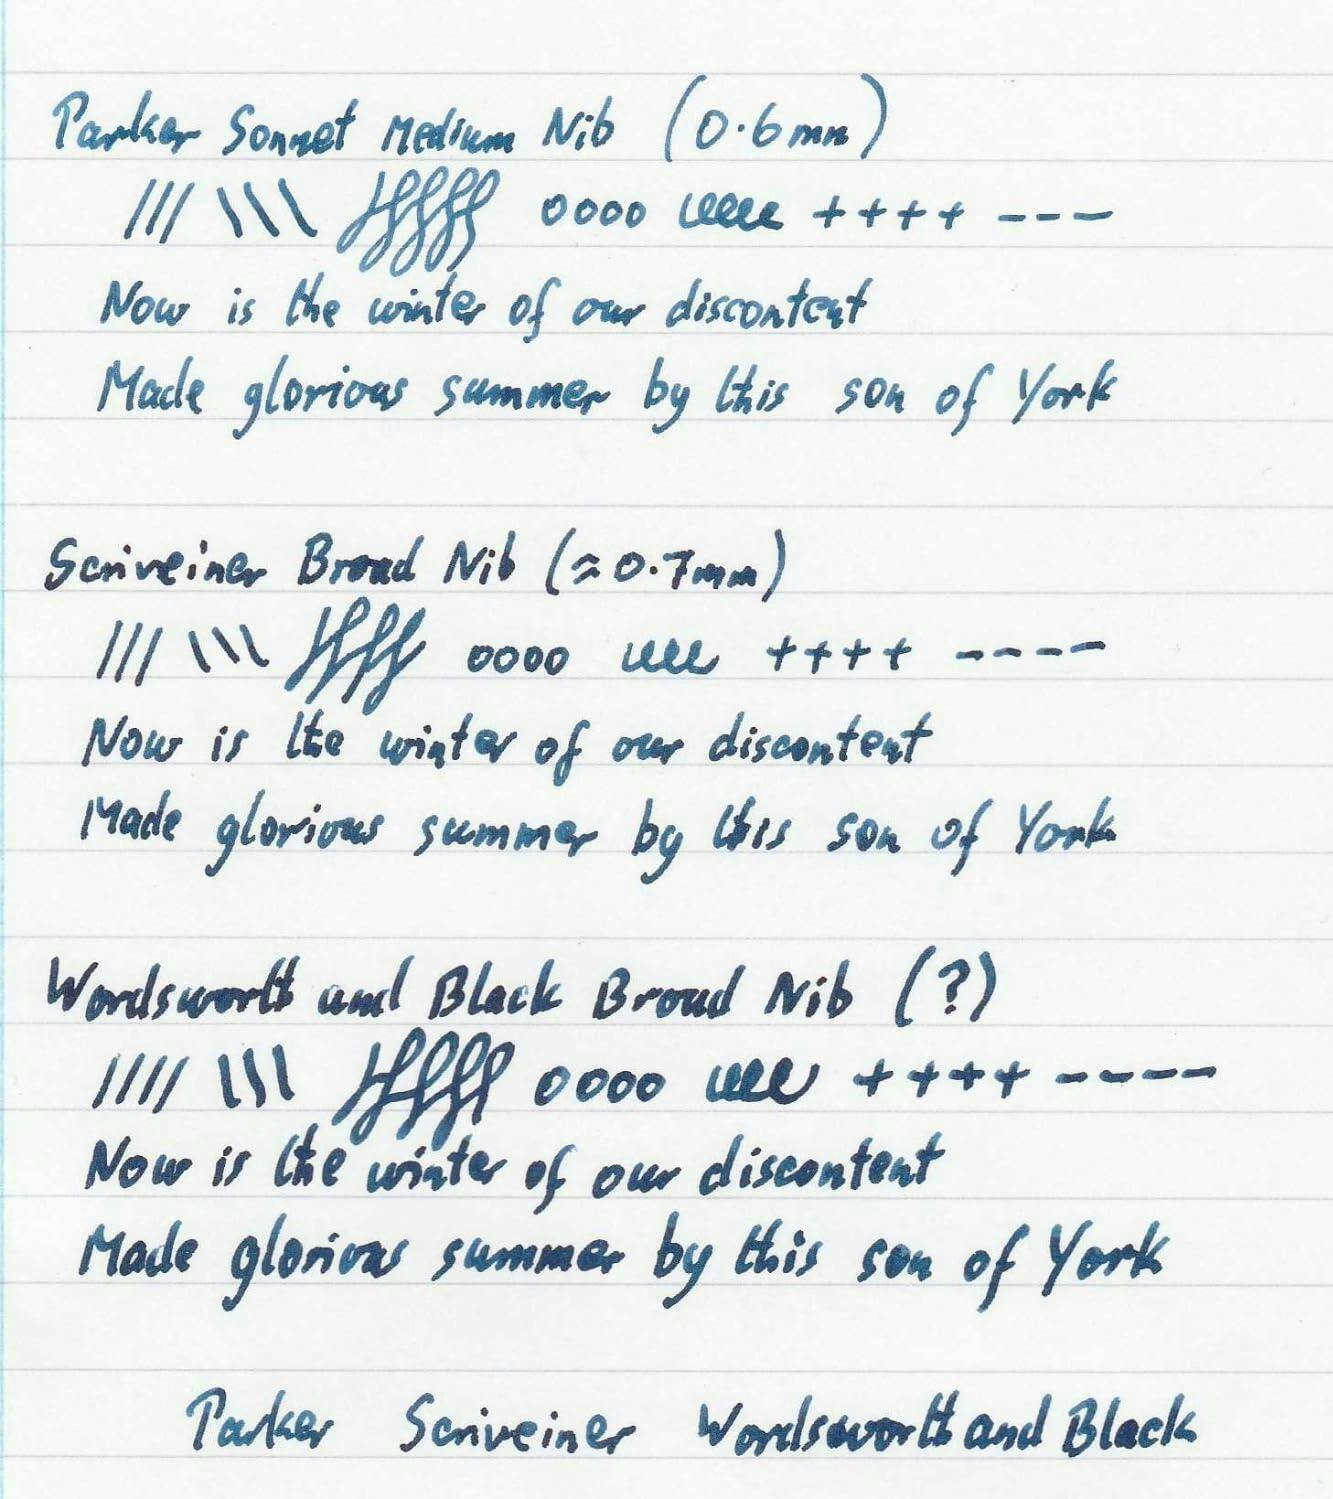 Parker Sonnet Medium Nib (0.6mm)
/// \\\ 0000 eeeee ++++ ---
Now is the winter of our discontent
Made glorious summer by this son of York
Scriveiner Broad Nib (≈0.7mm)
/// \\\ 0000 eeee ++++ ----
Now is the winter of our discontent
Made glorious summer by this son of York
Wordsworth and Black Broad Nib (?)
//// \\\ 0000 eeee ++++ ----
Now is the winter of our discontent
Made glorious summer by this son of York
Parker Scriveiner Wordsworth and Black